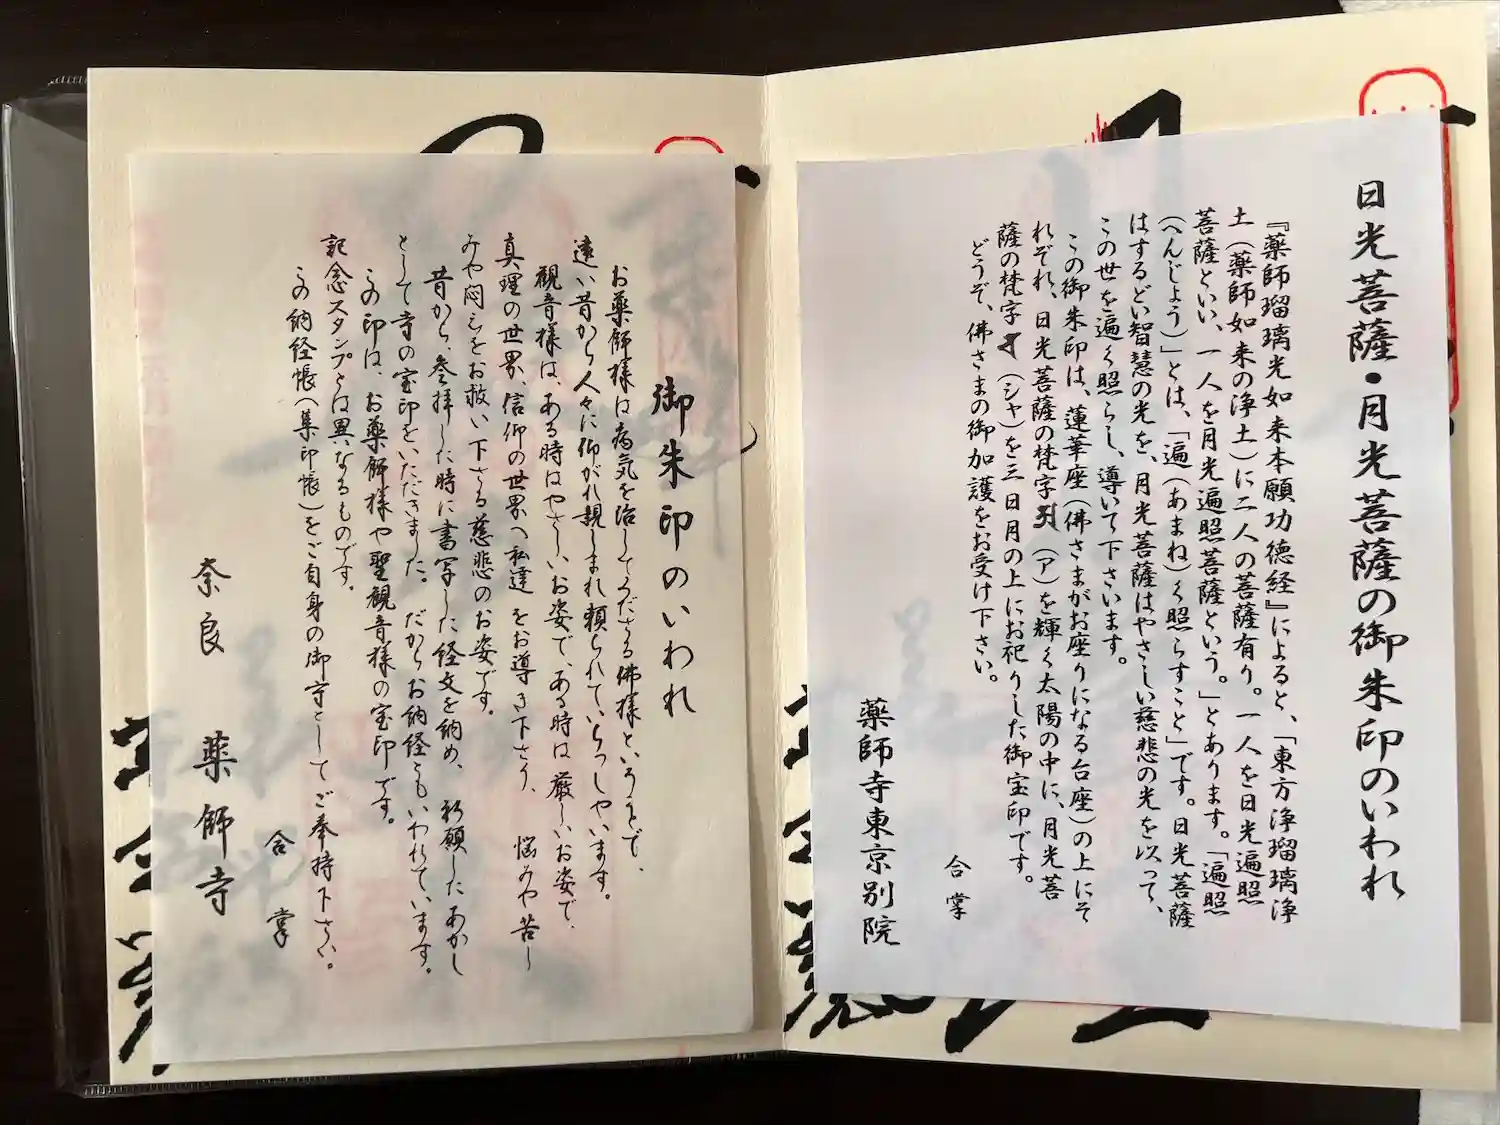 日光菩薩・月光菩薩の御朱印のいわれ
『薬師瑠璃光如来本願功徳経』によると、「東方浄瑠璃浄
土（薬師如来の浄土）に二人の菩薩有り。一人を日光遍照
菩薩といい、一人を月光遍照菩薩という。」とあります。「遍照
（へんじょう）」とは、「遍（あまね）く照らすこと」です。日光菩薩
はするどい智慧の光を、月光菩薩はやさしい慈悲の光を以って、
この世を遍く照らし、導いて下さいます。
この御朱印は、蓮華座（佛さまがお座りになる台座）の上にそ
れぞれ、日光菩薩の梵字（ア）を輝く太陽の中に、月光菩
薩の梵字（シャ）を三日月の上にお祀りした御宝印です。
どうぞ、佛さまの御加護をお受け下さい。
合掌
薬師寺東京別院
御朱印のいわれ
お薬師様は病気を治してくださる佛様というので、
遠い昔から人々に仰がれ親しまれ頼られていらっしゃいます。
観音様は、ある時はやさしいお姿で、ある時は厳しいお姿で、
真理の世界、信仰の世界へ私達をお導き下さり、悩みや苦し
みや悶えをお救い下さる慈悲のお姿です。
昔から、参拝した時に書写した経文を納め、祈願したあかし
として寺の宝印をいただきました。だからお納経ともいわれています。
この印は、お薬師様や聖観音様の宝印です。
記念スタンプとは異なるものです。
この納経帳（集印帳）をご自身の御守としてご奉持下さい。
合掌
奈良 薬師寺